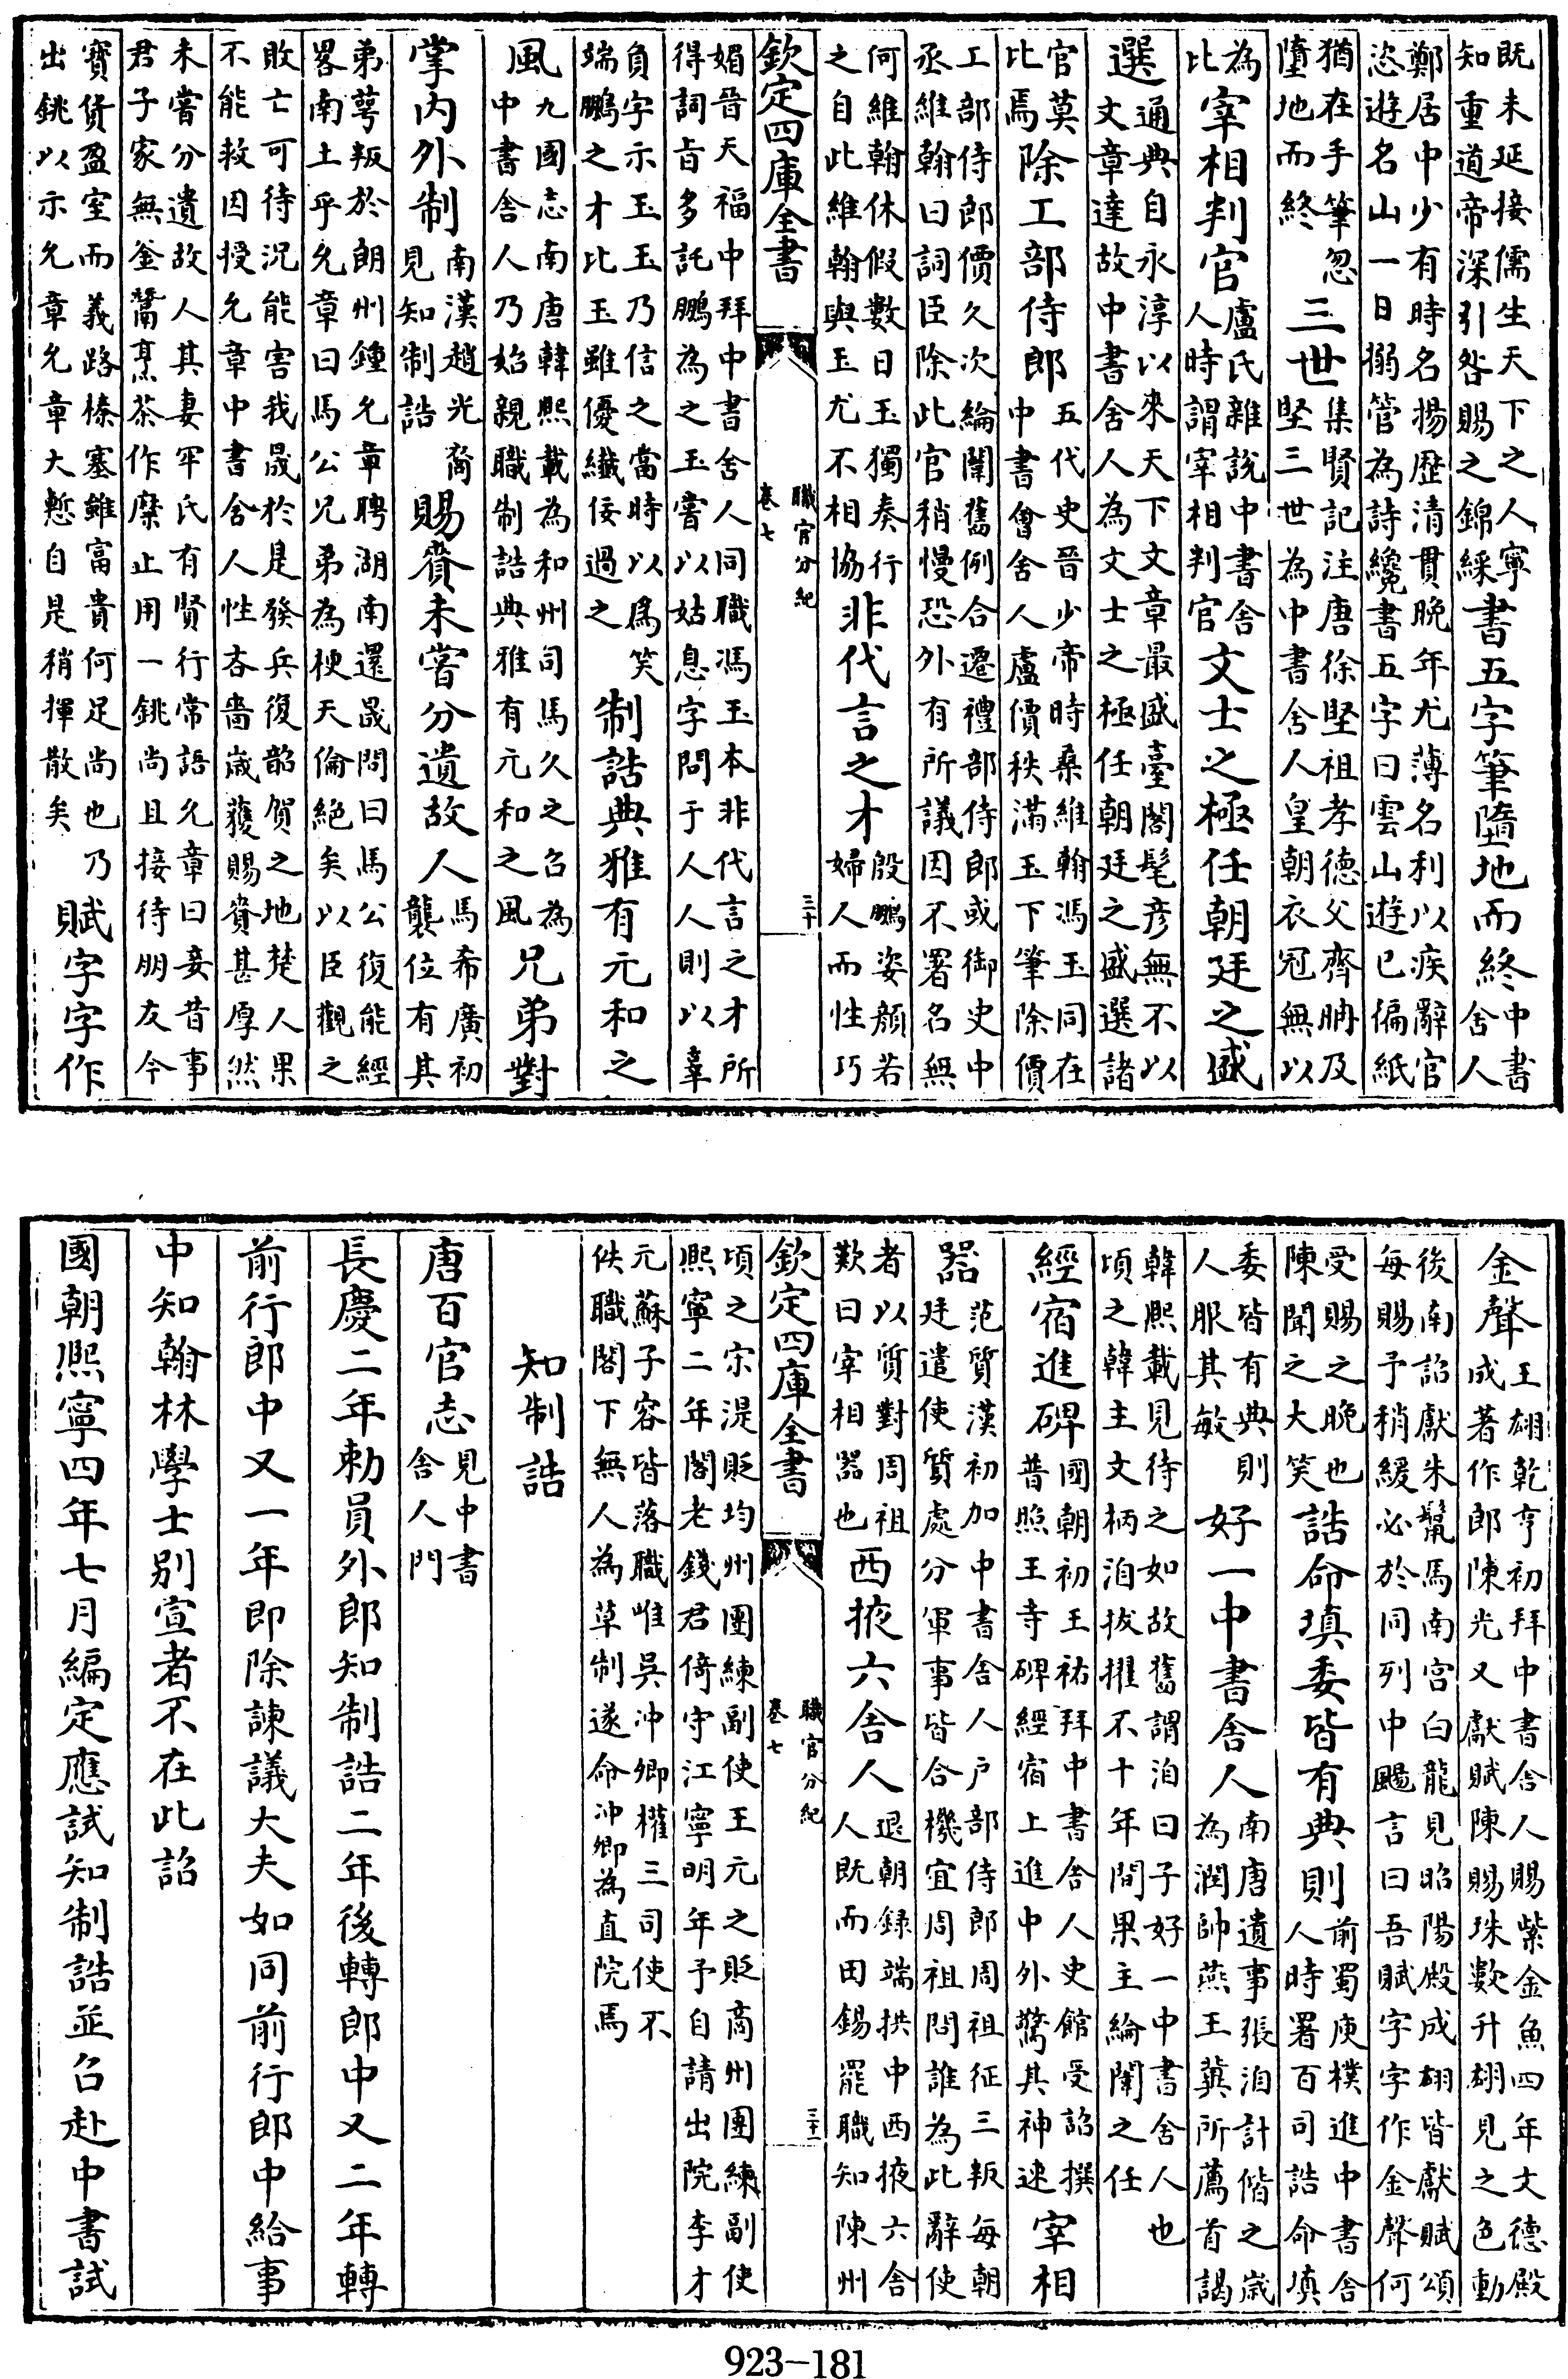 既未延接儒生天下之人寧知重道帝深引咎賜之錦綵書五字筆墮地而終中書舍人
鄭居中少有時名揚歷清貫晚年尤薄名利以疾辭官恣遊名山一日搦管為詩纔書五字曰雲山遊已徧紙
猶在手筆忽墮地而終三世集賢記注唐徐堅祖孝德父齊聃及堅三世為中書舍人皇朝衣冠無以
為比宰相判官盧氏雜說中書舍人時謂宰相判官文士之極任朝廷之盛
選通典自永淳以來天下文章最盛臺閣髦彥無不以文章達故中書舍人為文士之極任朝廷之盛選諸
官莫比焉除工部侍郎五代史晉少帝時桑維翰馮玉同在中書會舍人盧價秩滿玉下筆除價
工部侍郎價久次綸闈舊例合遷禮部侍郎或御史中丞維翰曰詞臣除此官稍慢恐外有所議因不署名無
何維翰休假數日玉獨奏行之自此維翰與玉尤不相協非代言之才殷鵬姿顏若婦人而性巧
欽定四庫全書 職官分紀 卷七 三十
媚晉天福中拜中書舍人同職馮玉本非代言之才所得詞旨多託鵬為之玉嘗以姑息字問于人人則以辜
負字示玉玉乃信之當時以爲笑端鵬之才比玉雖優纖佞過之制誥典雅有元和之
風九國志南唐韓熙載為和州司馬久之召為中書舍人乃始親職制誥典雅有元和之風兄弟對
掌內外制南漢趙光裔見知制誥賜賚未嘗分遺故人馬希廣初襲位有其
弟萼叛於朗州鍾允章聘湖南還晟問曰馬公復能經畧南土乎允章曰馬公兄弟為梗天倫絕矣以臣觀之
敗亡可待況能害我晟於是發兵復韶賀之地楚人果不能救因授允章中書舍人性吝嗇歲獲賜賚甚厚然
未嘗分遺故人其妻牢氏有賢行常語允章曰妾昔事君子家無釜鬵烹茶作糜止用一銚尚且接待朋友今
寶貨盈室而義路榛塞雖富貴何足尚也乃出銚以示允章允章大慙自是稍揮散矣賦字字作
金聲王翃乾亨初拜中書舍人賜紫金魚四年文德殿成著作郎陳光乂獻賦陳賜珠數升翃見之色動
後南詔獻朱鬣馬南宮白龍見昭陽殿成翃皆獻賦頌每賜予稍緩必於同列中颺言曰吾賦字字作金聲何
受賜之晚也陳聞之大笑誥命填委皆有典則前蜀庾樸進中書舍人時署百司誥命填
委皆有典則人服其敏好一中書舍人南唐遺事張洎計偕之歲為潤帥燕王冀所薦首謁
韓熙載見待之如故舊謂洎曰子好一中書舍人也頃之韓主文柄洎拔擢不十年間果主綸闈之任
經宿進碑國朝初王祐拜中書舍人史館受詔撰普照王寺碑經宿上進中外驚其神速宰相
器范質漢初加中書舍人戶部侍郎周祖征三叛每朝廷遣使質處分軍事皆合機宜周祖問誰為此辭使
者以質對周祖歎曰宰相器也西掖六舍人退朝錄端拱中西掖六舍人既而田錫罷職知陳州
欽定四庫全書 職官分紀 卷七 三十一
頃之宋湜貶均州團練副使王元之貶商州團練副使熙寧二年閣老錢君倚守江寧明年予自請出院李才
元蘇子容皆落職唯吳冲卿權三司使不佚職閣下無人為草制遂命冲卿為直院焉
知制誥
唐百官志見中書舍人門
長慶二年勅員外郎知制誥二年後轉郎中又二年轉
前行郎中又一年即除諫議大夫如同前行郎中給事
中知翰林學士別宣者不在此詔
國朝熙寧四年七月編定應試知制誥並召赴中書試
923-181